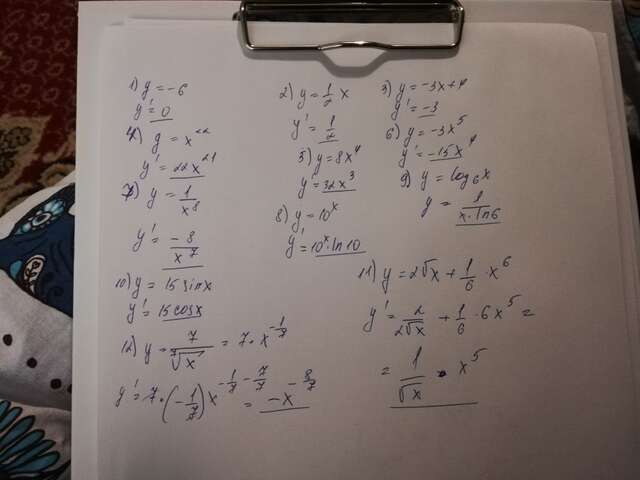 1) y = -6
y' = 0
2) y = 1/2 x
y' = 1/2
3) y = -3x+4
y' = -3
4) y = x^22
y' = 22x^21
5) y = 8x^4
y' = 32x^3
6) y = -3x^5
y' = -15x^4
7) y = 1/x^8
y' = -8/x^7
8) y = 10^x
y' = 10^x · ln 10
9) y = log_6 x
y = 1/(x · ln 6)
10) y = 15 sin x
y' = 15 cos x
11) y = 2√x + 1/6 · x^6
y' = 2/(2√x) + 1/6 · 6x^5 =
= 1/√x · x^5
12) y = 7/⁷√x = 7 · x^(-1/7)
y' = 7 · (-1/7) x^(-1/7 - 7/7) = -x^(-8/7)